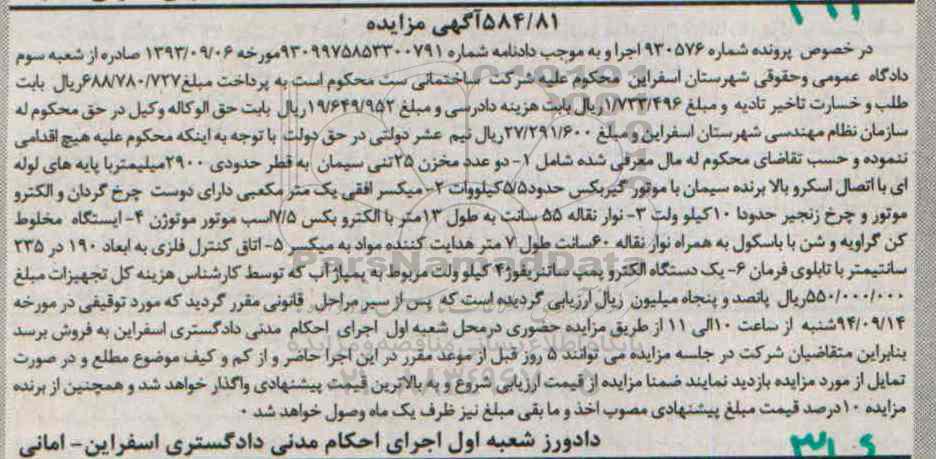 ۵۸۴/۸۱آگهی مزایده
در خصوص پرونده شماره ۹۳۰۵۷۶ اجرا و به موجب دادنامه شماره ۹۳۰۹۹۷۵۸۵۳۳۰۰۷۹۱مورخه ۱۳۹۳/۰۹/۰۶ صادره از شعبه سوم
دادگاه عمومی وحقوقی شهرستان اسفراین محکوم علیه شرکت ساختمانی ست محکوم است به پرداخت مبلغ۶۸۸/۷۸۰/۷۲۷ریال بابت
طلب و خسارت تاخیر تادیه و مبلغ ۱/۷۳۳/۴۹۶ریال بابت هزینه دادرسی و مبلغ ۱۹/۶۴۹/۹۵۲ریال بابت حق الوکاله وکیل در حق محکوم له
سازمان نظام مهندسی شهرستان اسفراین و مبلغ ۲۷/۲۹۱/۶۰۰ریال نیم عشر دولتی در حق دولت با توجه به اینکه محکوم علیه هیچ اقدامی
ننموده و حسب تقاضای محکوم له مال معرفی شده شامل ۱- دو عدد مخزن ۲۵تنی سیمان به قطر حدودی ۲۹۰۰میلیمتربا پایه های لوله
ای با اتصال اسکرو بالا برنده سیمان با موتور گیربکس حدود۵/۵کیلووات ۲- میکسر افقی یک متر مکعبی دارای دوست چرخ گردان و الکترو
موتور و چرخ زنجیر حدودا ۱۰کیلو ولت ۳- نوار نقاله ۵۵ سانت به طول ۱۳متر با الکترو بکس ۷/۵اسب موتور موتوژن ۴- ایستگاه مخلوط
کن گراویه و شن با باسکول به همراه نوار نقاله ۶۰سانت طول ۷ متر هدایت کننده مواد به میکسر ۵- اتاق کنترل فلزی به ابعاد ۱۹۰ در ۲۳۵
سانتیمتر با تابلوی فرمان ۶- یک دستگاه الکترو پمپ سانتریفوژ۴ کیلو ولت مربوط به پمپاژ آب که توسط کارشناس هزینه کل تجهیزات مبلغ
۵۵۰/۰۰۰/۰۰۰ریال پانصد و پنجاه میلیون ریال ارزیابی گردیده است که پس از سیر مراحل قانونی مقرر گردید که مورد توقیفی در مورخه
۹۴/۰۹/۱۴شنبه از ساعت ۱۰الی ۱۱ از طریق مزایده حضوری درمحل شعبه اول اجرای احکام مدنی دادگستری اسفراین به فروش برسد
بنابراین متقاضیان شرکت در جلسه مزایده می توانند ۵ روز قبل از موعد مقرر در این اجرا حاضر و از کم و کیف موضوع مطلع و در صورت
تمایل از مورد مزایده بازدید نمایند ضمنا مزایده از قیمت ارزیابی شروع و به بالاترین قیمت پیشنهادی واگذار خواهد شد و همچنین از برنده
مزایده ۱۰درصد قیمت مبلغ پیشنهادی مصوب اخذ و ما بقی مبلغ نیز ظرف یک ماه وصول خواهد شد ۰
دادورز شعبه اول اجرای احکام مدنی دادگستری اسفراین- امانی
ParsNamadData